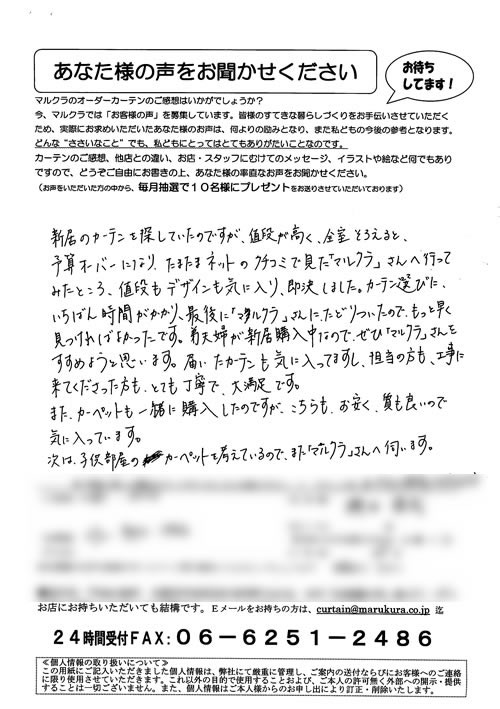 あなた様の声をお聞かせください
お待ち
してます！
マルクラのオーダーカーテンのご感想はいかがでしょうか？
今、マルクラでは「お客様の声」を募集しています。皆様のすてきな暮らしづくりをお手伝いさせていただく
ため、実際にお求めいただいたあなた様のお声は、何よりの励みとなり、また私どもの今後の参考となります。
どんな“ささいなこと”でも、私どもにとってはとてもありがたいことなのです。
カーテンのご感想、他店との違い、お店・スタッフにむけてのメッセージ、イラストや絵など何でもあり
ですので、どうぞご自由にお書きの上、あなた様の率直なお声をお聞かせください。
（お声をいただいた方の中から、毎月抽選で１０名様にプレゼントをお送りさせていただいております）
新居のカーテンを探していたのですが、値段が高く、全室そろえると、
予算オーバーになり、たまたまネットのクチコミで見た「マルクラ」さんへ行って
みたところ、値段もデザインも気に入り、即決しました。カーテン選びに、
いちばん時間がかかり、最後に「マルクラ」さんに、たどりついたので、もっと早く
見つければよかったです。弟夫婦が新居購入中なので、ぜひ「マルクラ」さんを
すすめようと思います。届いたカーテンも気に入ってますし、担当の方も、工事に
来てくださった方も、とても丁寧で、大満足です。
また、カーペットも一緒に購入したのですが、こちらも、お安く、質も良いので
気に入っています。
次は、子供部屋のカーペットを考えているので、また「マルクラ」さんへ伺います。
お店にお持ちいただいても結構です。Ｅメールをお持ちの方は、curtain@marukura.co.jp 迄
２４時間受付ＦＡＸ：０６－６２５１－２４８６
≪個人情報の取り扱いについて≫
この用紙にご記入いただきました個人情報は、弊社にて厳重に管理し、ご案内の送付ならびにお客様へのご連絡
に限り使用させていただきます。これ以外の目的で使用することおよび、ご本人の許可無く外部への開示・提供
することは一切ございません。また、個人情報はご本人様からのお申し出により訂正・削除いたします。